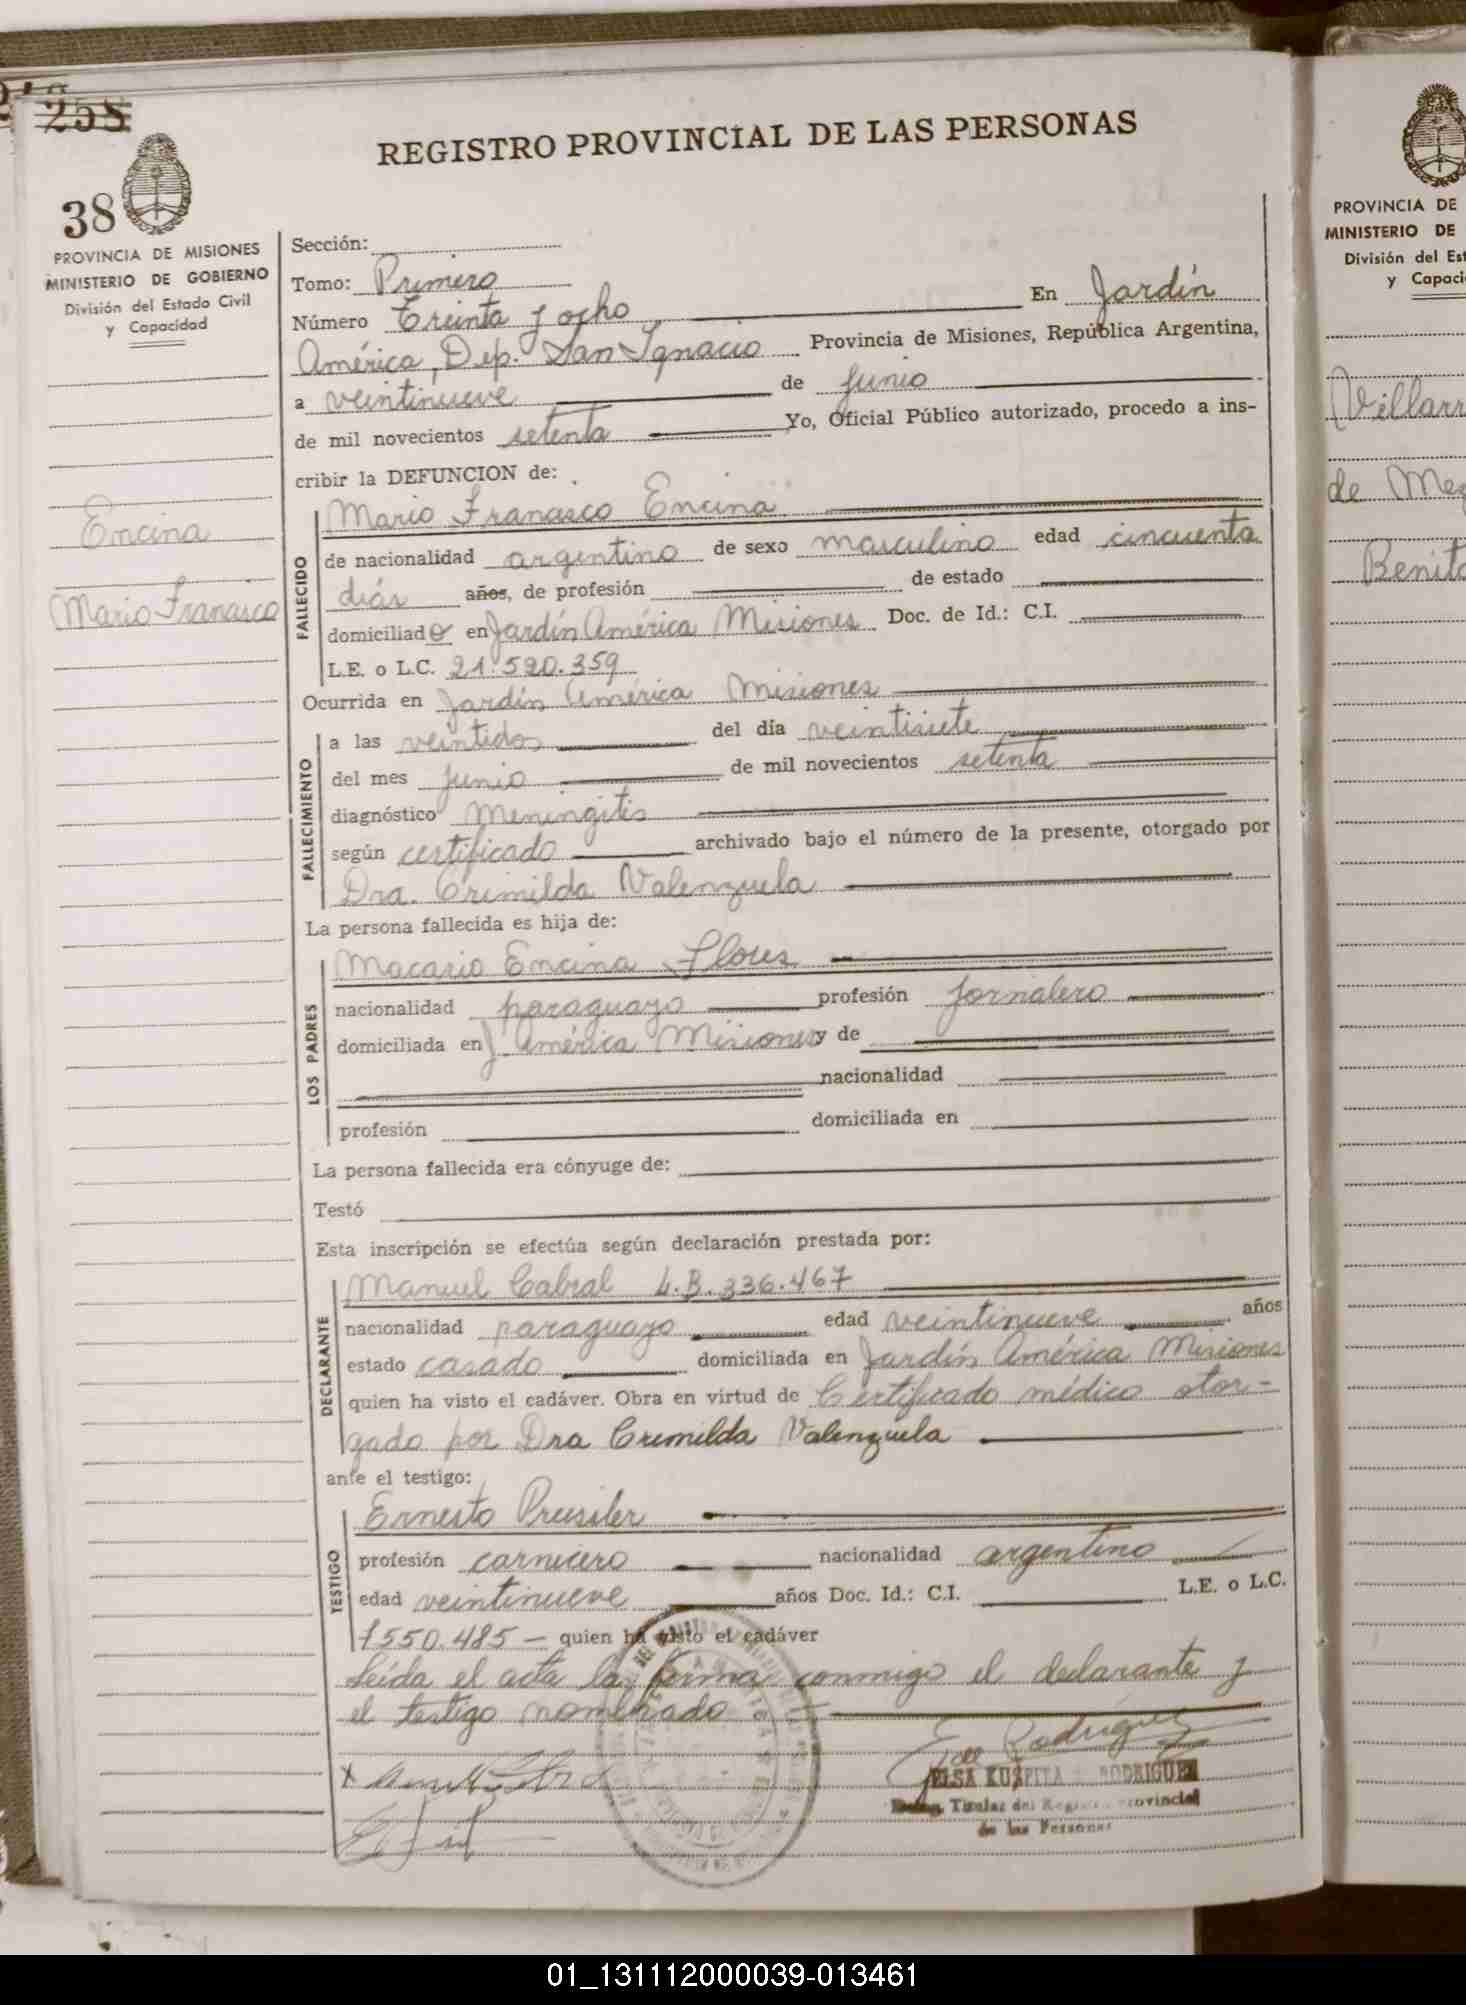 258
REGISTRO PROVINCIAL DE LAS PERSONAS
38
PROVINCIA DE MISIONES
MINISTERIO DE GOBIERNO
División del Estado Civil
y Capacidad
Encina
Mario Francisco
Sección:
Tomo: Primero
Número Treinta y ocho En Jardín
América, Dep. San Ignacio Provincia de Misiones, República Argentina,
a veintinueve de junio
de mil novecientos setenta Yo, Oficial Público autorizado, procedo a ins-
cribir la DEFUNCION de:
FALLECIDO
Mario Francisco Encina
de nacionalidad argentino de sexo masculino edad cincuenta
días años, de profesión de estado
domiciliado en Jardín América Misiones Doc. de Id.: C.I.
L.E. o L.C. 21.520.359
Ocurrida en Jardín América Misiones
FALLECIMIENTO
a las veintidos del día veintisiete
del mes junio de mil novecientos setenta
diagnóstico Meningitis
según certificado archivado bajo el número de la presente, otorgado por
Dra. Crimilda Valenzuela
La persona fallecida es hija de:
LOS PADRES
Macario Encina Flores
nacionalidad paraguayo profesión jornalero
domiciliada en J. América Misiones y de
nacionalidad
profesión domiciliada en
La persona fallecida era cónyuge de:
Testó
Esta inscripción se efectúa según declaración prestada por:
DECLARANTE
Manuel Cabral L.B. 336.467
nacionalidad paraguayo edad veintinueve años
estado casado domiciliada en Jardín América Misiones
quien ha visto el cadáver. Obra en virtud de Certificado médico otor-
gado por Dra Crimilda Valenzuela
ante el testigo:
TESTIGO
Ernesto Preisiler
profesión carnicero nacionalidad argentino
edad veintinueve años Doc. Id.: C.I. L.E. o L.C.
7550.485 — quien ha visto el cadáver
Leída el acta la firma conmigo el declarante y
el testigo nombrado
E Rodríguez
ELSA KUSPITA RODRIGUEZ
Deleg. Titular del Registro Provincial
de las Personas
PROVINCIA DE
MINISTERIO DE
División del Est
y Capaci
Villarr
de Mez
Benito
01_131112000039-013461